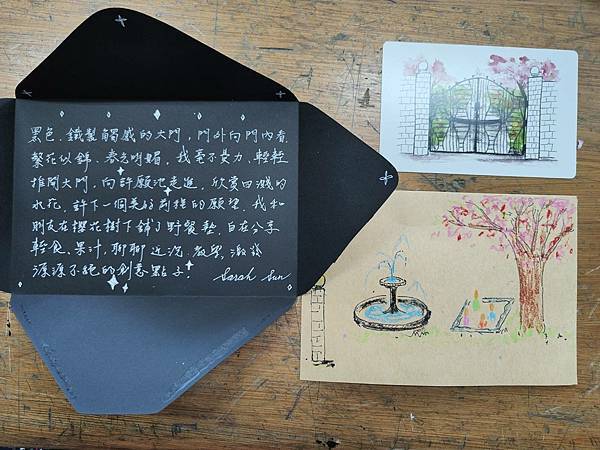 黑色、鐵製觸感的大門，門外向門內看
繁花似錦、春光明媚，我毫不費力、輕輕
推開大門，向許願池走進，欣賞四濺的
水花，許下一個美好前程的願望。我和
朋友在櫻花樹下鋪了野餐墊，自在分享
輕食、果汁，聊聊近況、教學，激發
源源不絕的創意點子。 Sarah Sun